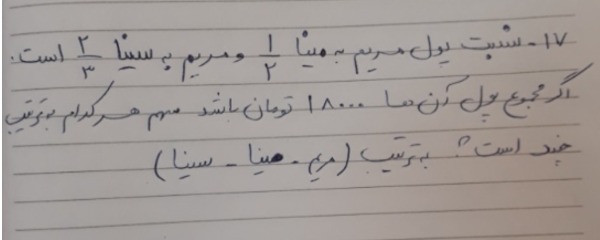 ۱۷- نسبت پول مریم به مینا ۱/۲ و مریم به سینا ۲/۳ است.
اگر مجموع پول آن ها ۱۸۰۰۰ تومان باشد سهم هر کدام به ترتیب
چند است؟ به ترتیب (مریم - مینا - سینا)